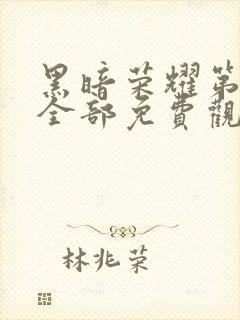 黑暗荣耀第
全部免費觀
林兆荣